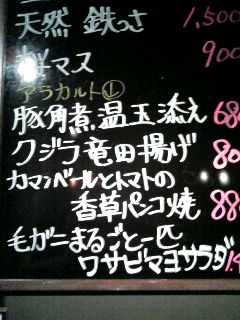 天然 鉄っさ 1,500
桜マス 900
アラカルト↓
豚角煮温玉添え 68
クジラ竜田揚げ 80
カマンベールとトマトの
香草パンコ焼 88
毛ガニまるごと一匹
ワサビマヨサラダ 1.4